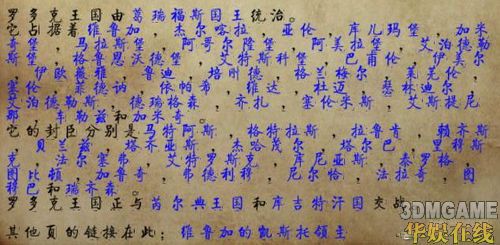 罗多克王国由葛瑞福斯国王统治。
它占据着维鲁加， 杰尔喀拉， 亚伦， 库儿玛堡， 加米
奇堡， 马拉斯堡， 阿哥尔隆堡， 阿美拉堡， 艾泊德勒
斯堡， 格鲁恩沃德堡， 艾特斯科堡， 巴甫伦， 伊美尔
， 伊欧薇雅， 鲁迪， 培刑德， 格兰梅尔， 莱芜伦，
塞伦， 菲德讷， 依帕希， 维达， 杜迈， 瑟林迪尔，
艾泊德勒斯， 德瑞格森， 齐扎， 塞伦米斯， 艾斯提尼
那， 车勒兹和加米奇。
它的封臣分别是马特阿斯， 格特拉斯， 拉鲁肯， 赖齐斯
， 贝兰兹， 塔齐亚斯， 杰哈茂尔， 塔尔巴， 里穆斯
克， 法尔塞弗， 艾特罗斯克， 库尼亚斯， 泰罗格，
图比顿， 加鲁奇， 弗德利穆， 尼尔恰， 法拉奇， 图
穆巴和瑞齐森。
罗多克王国正与芮尔典王国和库吉特汗国交战。
其他页的链接在此： 维鲁加的凯斯托领主
3DMGAME
华娱在线